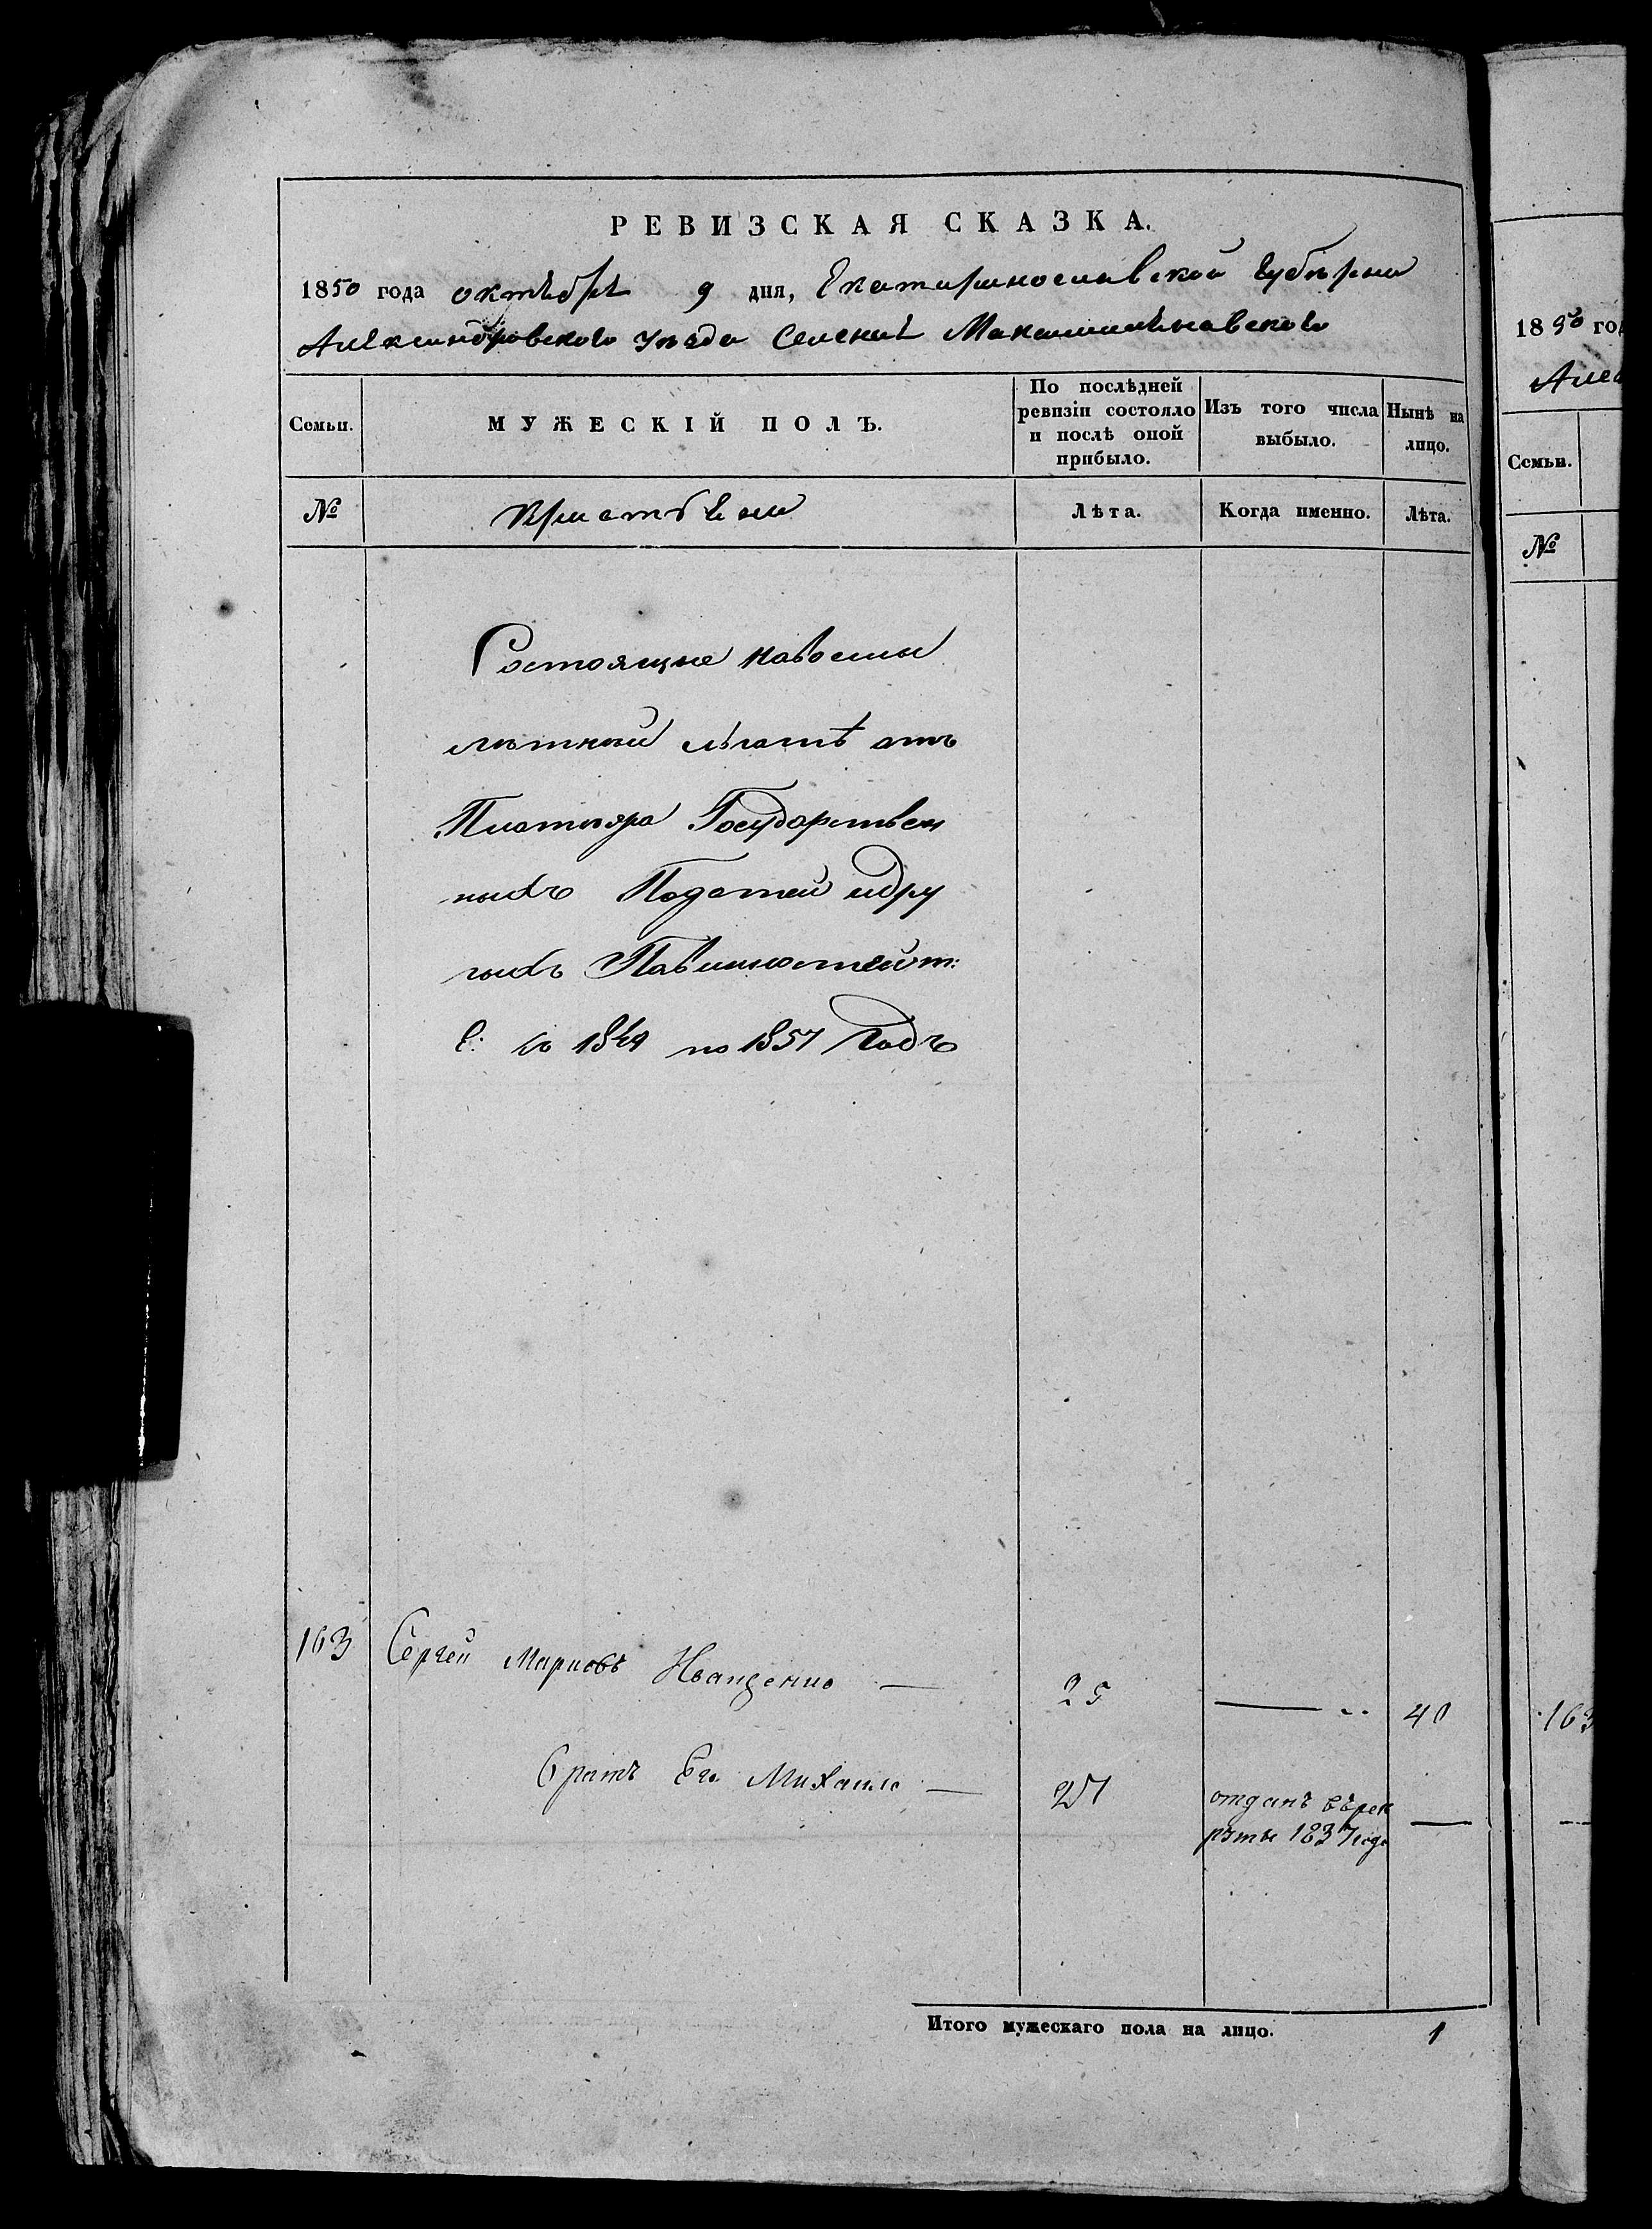 РЕВИЗСКАЯ СКАЗКА.
1850 года октября 9 дня, Екатеринославской Губернии
Александровского уезда Селения
Семьи.
МУЖЕСКІЙ ПОЛЪ.
По послѣдней ревизіи состояло и послѣ оной прибыло.
Изъ того числа выбыло.
Нынѣ на лицо.
№
Лѣта.
Когда именно.
Лѣта.
Состоящие навосьми
лѣтней льготѣ отъ
Платежа Государствен
ныхъ Податей идру
гихъ Павинностейт:
е: съ по 1857 Годъ
163 Сергей Марковъ Иващенко — 25 — 40
братъ Его Михаило — отданъ върек
руты 1837 года —
Итого мужескаго пола на лицо. 1
1850 го
Алек
Семьи.
№
163